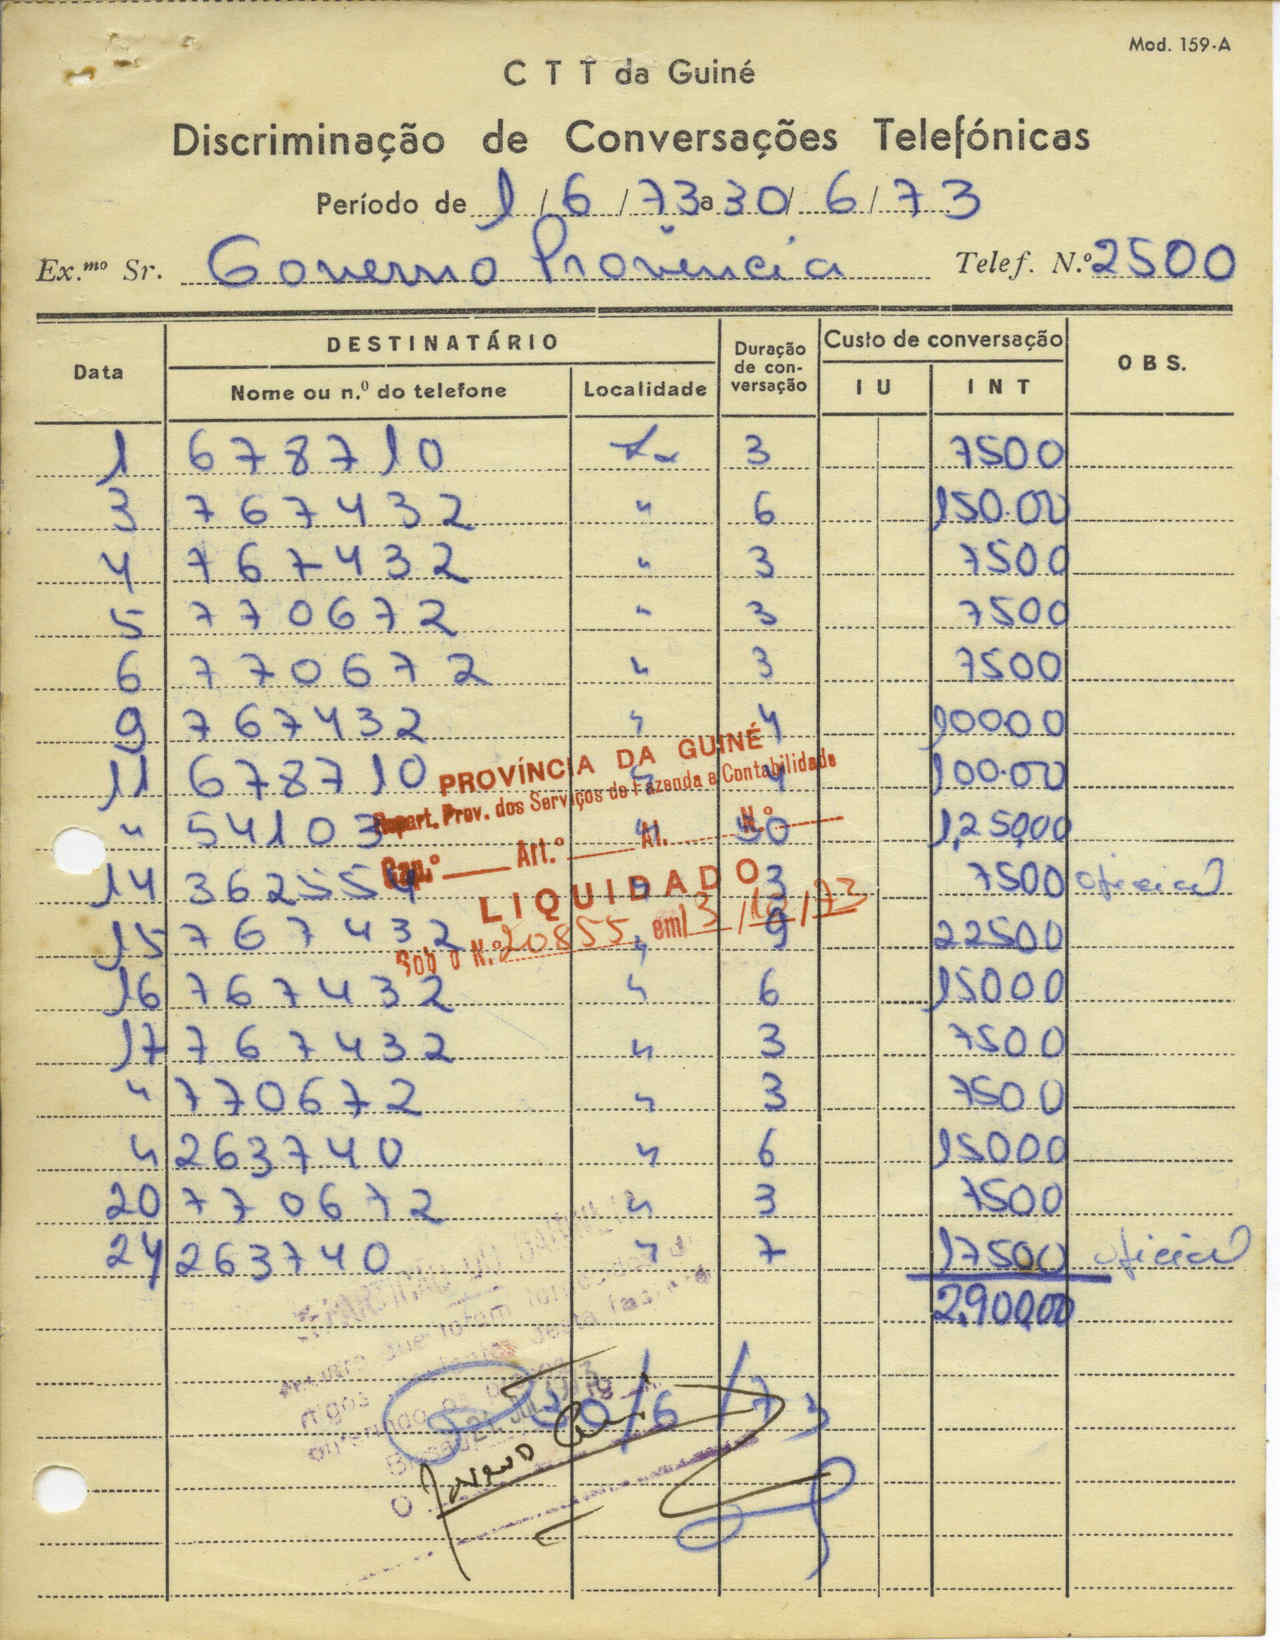 Mod. 159-A
C T T da Guiné
Discriminação de Conversações Telefónicas
Período de 1/6/73 a 30/6/73
Ex.mo Sr. Governo Provincia Telef. N.º 2500
Data DESTINATÁRIO Duração de con-versação Custo de conversação OBS.
Nome ou n.º do telefone Localidade I U I N T
1 678710 Lx 3 7500
3 767432 " 6 150.00
4 767432 " 3 7500
5 770672 " 3 7500
6 770672 " 3 7500
9 767432 " 4 10000
11 678710 " 4 100.00
" 54103 " 50 1,25000
14 362554 " 3 7500 oficial
15 767432 " 9 22500
16 767432 " 6 15000
17 767432 " 3 7500
" 770672 " 3 7500
" 263740 " 6 15000
20 770672 " 3 7500
24 263740 " 7 17500 oficial
2.90000
PROVÍNCIA DA GUINÉ
Repart. Prov. dos Serviços de Fazenda e Contabilidade
Cap.º Art.º Al. N.º
LIQUIDADO
Sob o N.º 20855 em 13/10/73
30/6/73